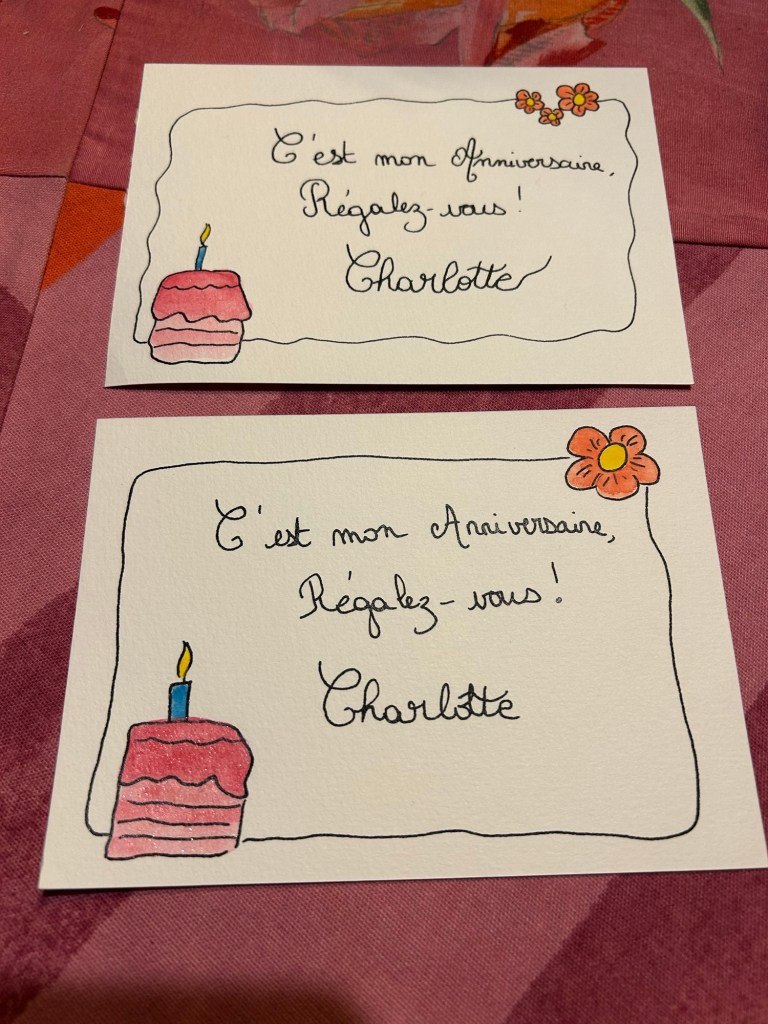 C'est mon Anniversaire,
Régalez-vous !
Charlotte
C'est mon Anniversaire,
Régalez-vous !
Charlotte